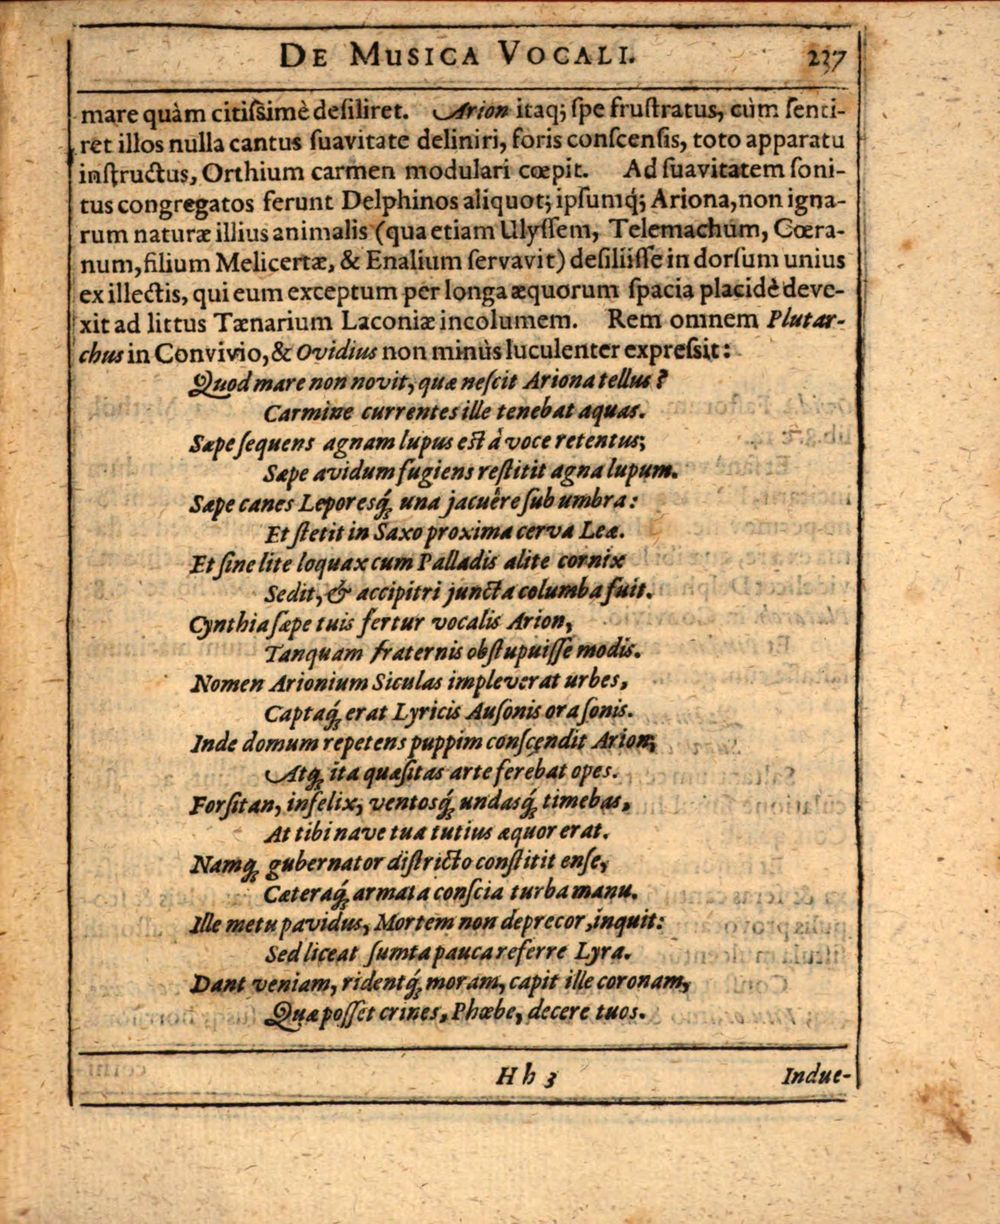 DE MUSICA VOCALI. 237
mare quàm citiſsimè deſiliret. Arion itaq; ſpe fruſtratus, cùm ſenti-
ret illos nulla cantus ſuavitate deliniri, foris conſcenſis, toto apparatu
inſtructus, Orthium carmen modulari cœpit. Ad ſuavitatem ſoni-
tus congregatos ferunt Delphinos aliquot; ipſumq́; Ariona, non igna-
rum naturæ illius animalis (qua etiam Ulyſſem, Telemachum, Cœra-
num, filium Melicertæ, & Enalium ſervavit) deſiliiſſe in dorſum unius
ex illectis, qui eum exceptum per longa æquorum ſpacia placidè deve-
xit ad littus Tænarium Laconiæ incolumem. Rem omnem Plutar-
chus in Convivio, & Ovidius non minùs luculenter expreſsit:
Quod mare non novit, quæ neſcit Ariona tellus?
Carmine currentes ille tenebat aquas.
Sæpe ſequens agnam lupus eſt à voce retentus;
Sæpe avidum fugiens reſtitit agna lupum.
Sæpe canes Leporesq́; una jacuêre ſub umbra:
Et ſtetit in Saxo proxima cerva Leæ.
Et ſine lite loquax cum Palladis alite cornix
Sedit, & accipitri juncta columba fuit.
Cynthia ſæpe tuis fertur vocalis Arion,
Tanquam fraternis obſtupuiſſe modis.
Nomen Arionium Siculas impleverat urbes,
Captaq́; erat Lyricis Auſonis ora ſonis.
Inde domum repetens puppim conſcendit Arion;
Atq; ita quæſitas arte ferebat opes.
Forſitan, infelix, ventosq́; undasq́; timebas,
At tibi nave tua tutius æquor erat.
Namq; gubernator diſtricto conſtitit enſe,
Cæteraq́; armata conſcia turba manu.
Ille metu pavidus, Mortem non deprecor, inquit:
Sed liceat ſumta pauca referre Lyra.
Dant veniam, ridentq́; moram, capit ille coronam,
Quæ poſſet crines, Phœbe, decere tuos.
H h 3 Indue-